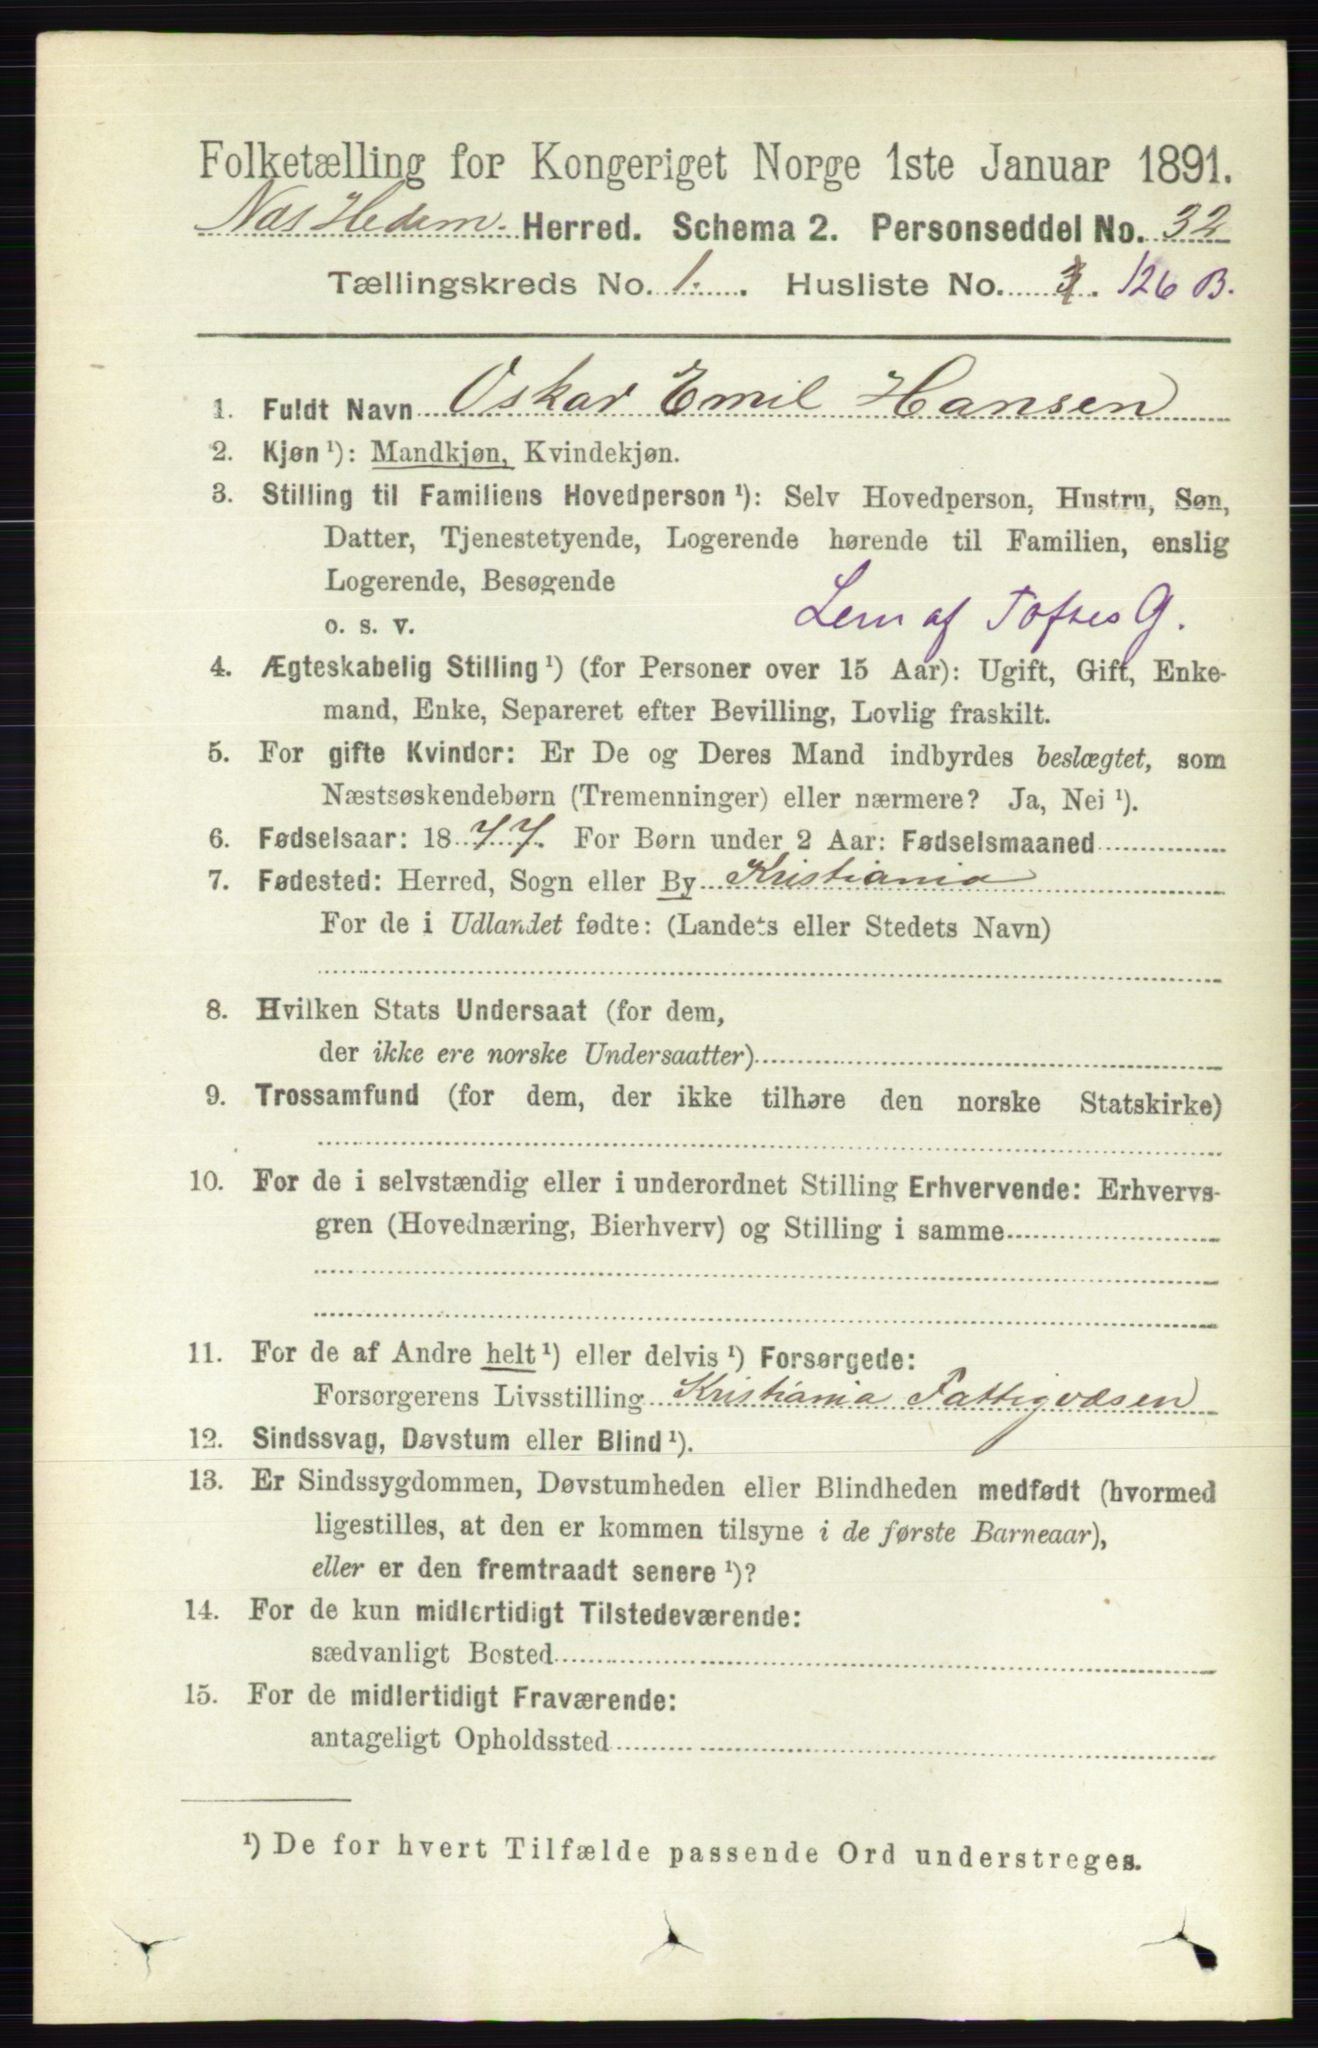 Folketælling for Kongeriget Norge 1ste Januar 1891.
Næs Hedem. Herred. Schema 2. Personseddel No. 32
Tællingskreds No. 1. Husliste No. 126 B.
1. Fuldt Navn Oskar Emil Hansen
2. Kjøn ¹): Mandkjøn, Kvindekjøn.
3. Stilling til Familiens Hovedperson ¹): Selv Hovedperson, Hustru, Søn,
Datter, Tjenestetyende, Logerende hørende til Familien, enslig
Logerende, Besøgende
o. s. v. Lem af Toftes G.
4. Ægteskabelig Stilling ¹) (for Personer over 15 Aar): Ugift, Gift, Enke-
mand, Enke, Separeret efter Bevilling, Lovlig fraskilt.
5. For gifte Kvinder: Er De og Deres Mand indbyrdes beslægtet, som
Næstsøskendebørn (Tremenninger) eller nærmere? Ja, Nei ¹).
6. Fødselsaar: 1877. For Børn under 2 Aar: Fødselsmaaned
7. Fødested: Herred, Sogn eller By Kristiania
For de i Udlandet fødte: (Landets eller Stedets Navn)
8. Hvilken Stats Undersaat (for dem,
der ikke ere norske Undersaatter)
9. Trossamfund (for dem, der ikke tilhøre den norske Statskirke)
10. For de i selvstændig eller i underordnet Stilling Erhvervende: Erhvervs-
gren (Hovednæring, Bierhverv) og Stilling i samme
11. For de af Andre helt ¹) eller delvis ¹) Forsørgede:
Forsørgerens Livsstilling Kristiania Fattigvæsen
12. Sindssvag, Døvstum eller Blind ¹).
13. Er Sindssygdommen, Døvstumheden eller Blindheden medfødt (hvormed
ligestilles, at den er kommen tilsyne i de første Barneaar),
eller er den fremtraadt senere ¹)?
14. For de kun midlertidigt Tilstedeværende:
sædvanligt Bosted
15. For de midlertidigt Fraværende:
antageligt Opholdssted
¹) De for hvert Tilfælde passende Ord understreges.